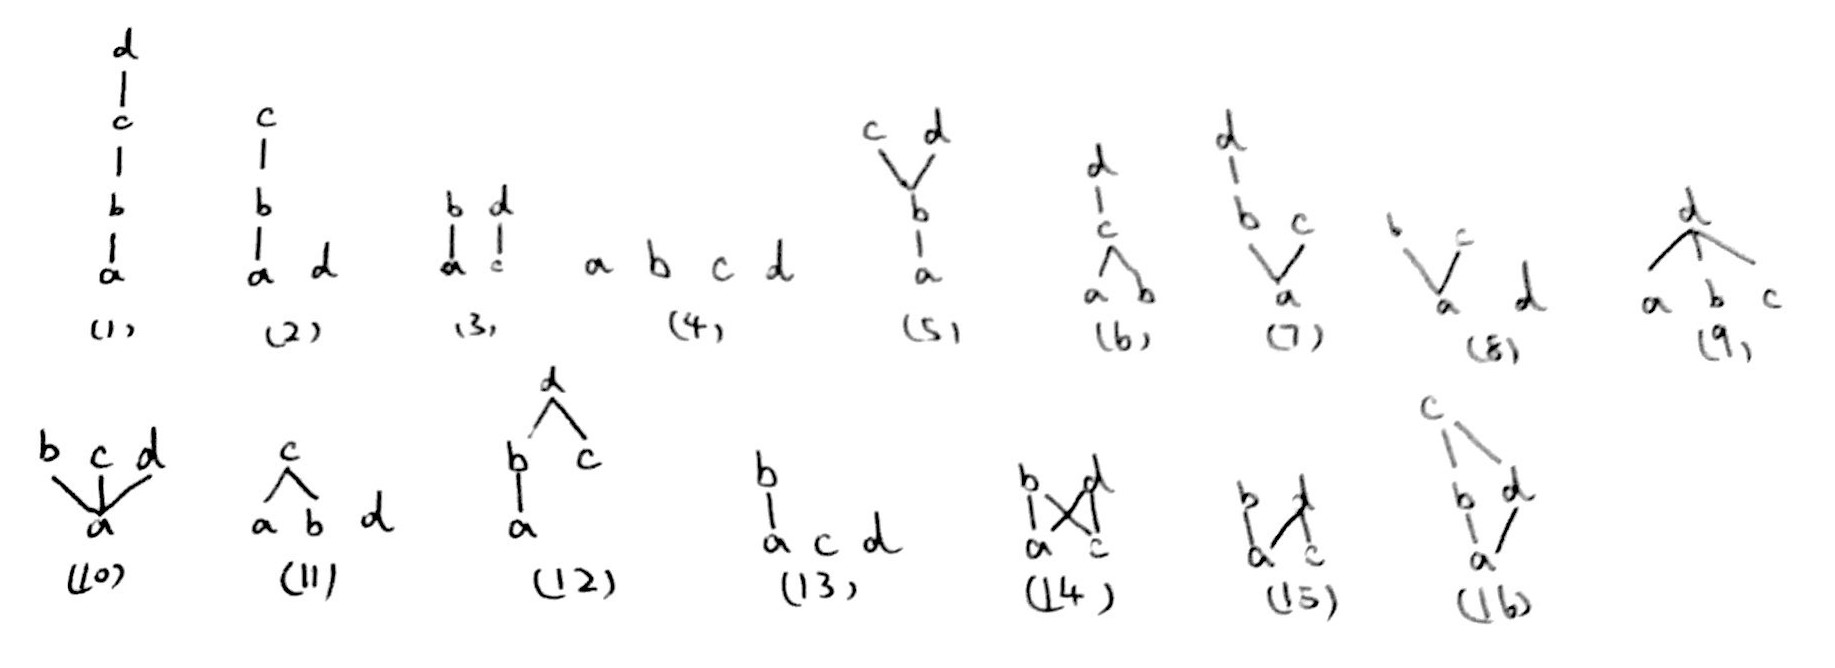 d
c
b
a
(1)
c
b
a d
(2)
b d
a c
(3)
a b c d
(4)
c d
b
a
(5)
d
c
a b
(6)
d
b c
a
(7)
b c
a d
(8)
d
a b c
(9)
b c d
a
(10)
c
a b d
(11)
d
b c
a
(12)
b
a c d
(13)
b d
a c
(14)
b d
a c
(15)
c
b d
a
(16)